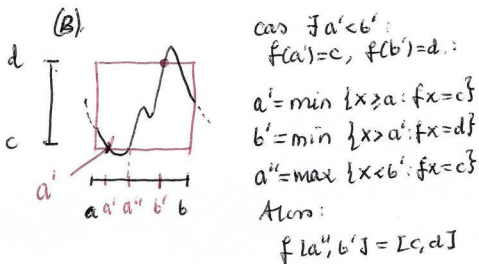 (B).
d
c
a'
a a' a'' b' b
cas ∃ a' < b' :
f(a') = c, f(b') = d :
a' = min {x ≥ a : fx = c}
b' = min {x > a' : fx = d}
a'' = max {x < b' : fx = c}
Alors :
f [a'', b'] = [c, d]